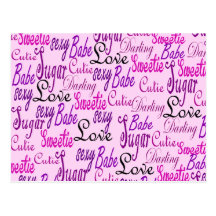 Sweetie sexy Babe Darling Sweetie
Cutie Sugar Love Cutie Sugar
sexy Babe Darling sexy Babe
Sweetie Cutie Darling Sweetie Cutie
Sugar Love Sugar Love
sexy Babe Darling sexy Babe
Cutie Sweetie Love Darling Cutie
Sugar Sweetie Sugar
Love sexy Babe Love